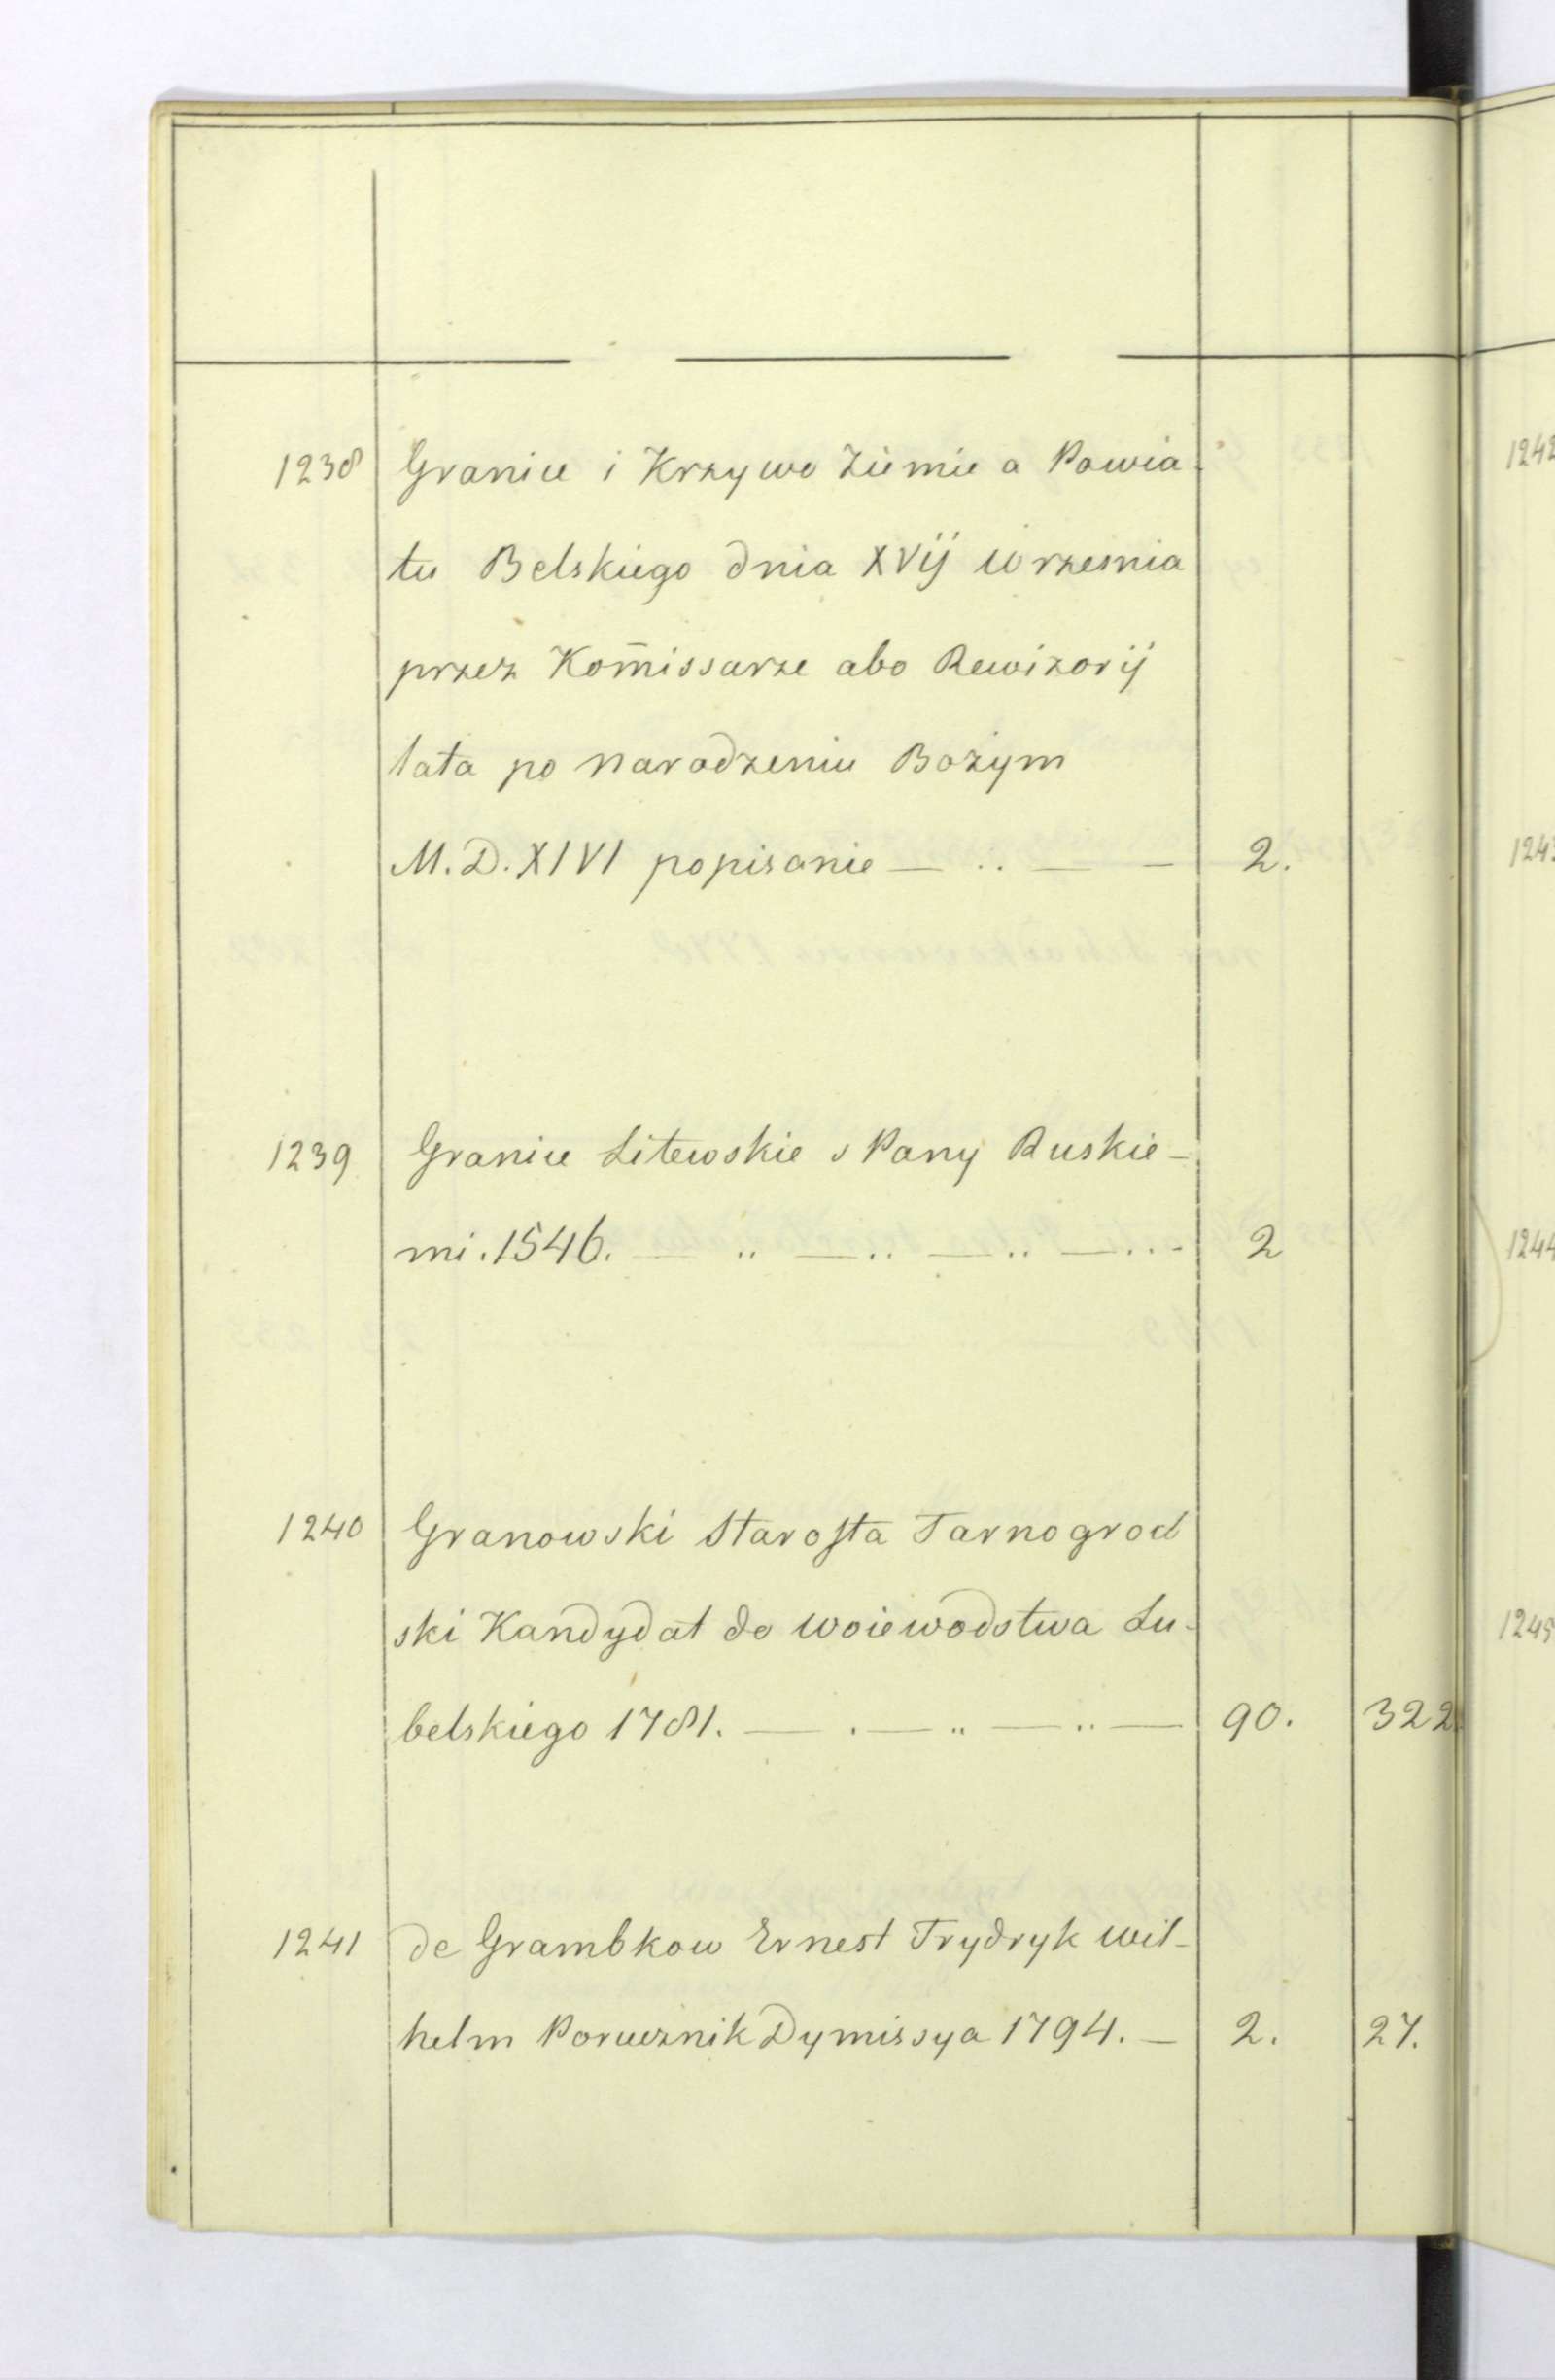 1238 Granice i Krzywo Ziemie a Powia-
tu Belskiego dnia XVij Wrzesnia
przez Kom̄issarze abo Rewizorij
lata po narodzeniu Bożym
M.D.XIVI popisanie — .. — — 2.
1239 Granice Litewskie s Pany Ruskie-
mi. 1546. — .. — .. — .. — ... - 2
1240 Granowski Starosta Tarnogrod
ski Kandydat do woiewodstwa Lu-
belskiego 1781. — . — .. — .. — 90. 322.
1241 de Grambkow Ernest Frydryk Wil-
helm Porucznik Dymissya 1794. — 2. 27.
1242
1243
1244
1245